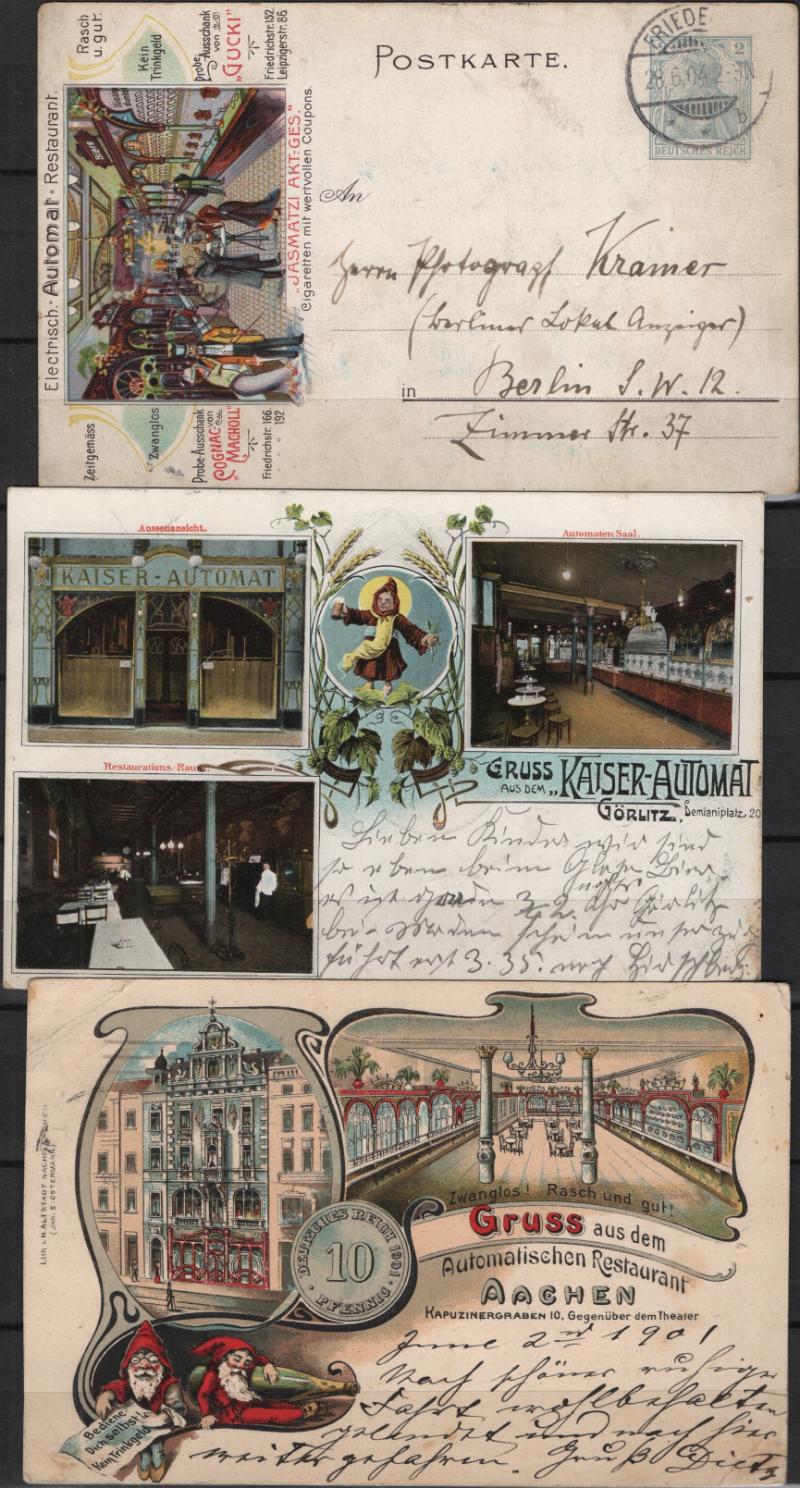 Electrisch. Automat. Restaurant.
Rasch
u. gut.
Kein
Trinkgeld
Probe-Ausschank
von
"GUCKI"
Friedrichstr. 152.
Leipzigerstr. 86.
Biere
"JASMATZI AKT: GES."
Cigaretten mit wertvollen Coupons.
Zeitgemäss
Zwanglos
Probe-Ausschank
von
"COGNAC
MACHOLL"
Friedrichstr. 166.
192.
POSTKARTE.
FRIEDE
28.6.04. 2-3N
b
2
DEUTSCHES REICH
An
Herrn Photograph Krainer
(Berliner Lokal Anzeiger)
in Berlin S. W. 12.
Zimmer Str. 37
Aussenansicht.
KAISER-AUTOMAT
Automaten Saal.
Restaurations-Raum.
GRUSS
AUS DEM „KAISER-AUTOMAT
GÖRLITZ, Demianiplatz 20
Lieben Kinder wir sind
so eben beim Glase Bier
es ist 2 Uhr Görlitz
bei
führt erst 3.35. nach Hirschberg
Lith v. H. ALTSTADT NACHF. AACHEN
(Joh. E. OSTERMANN)
DEUTSCHES REICH 1901
10
PFENNIG
Zwanglos! Rasch und gut!
Gruss aus dem
Automatischen Restaurant
AACHEN
KAPUZINERGRABEN 10, Gegenüber dem Theater
Bediene
Dich selbst!
Kein Trinkgeld
June 2nd 1901
Nach schöner ruhiger
Fahrt wohlbehalten
gelandet und nach hier
weiter gefahren. Gruß Dietz